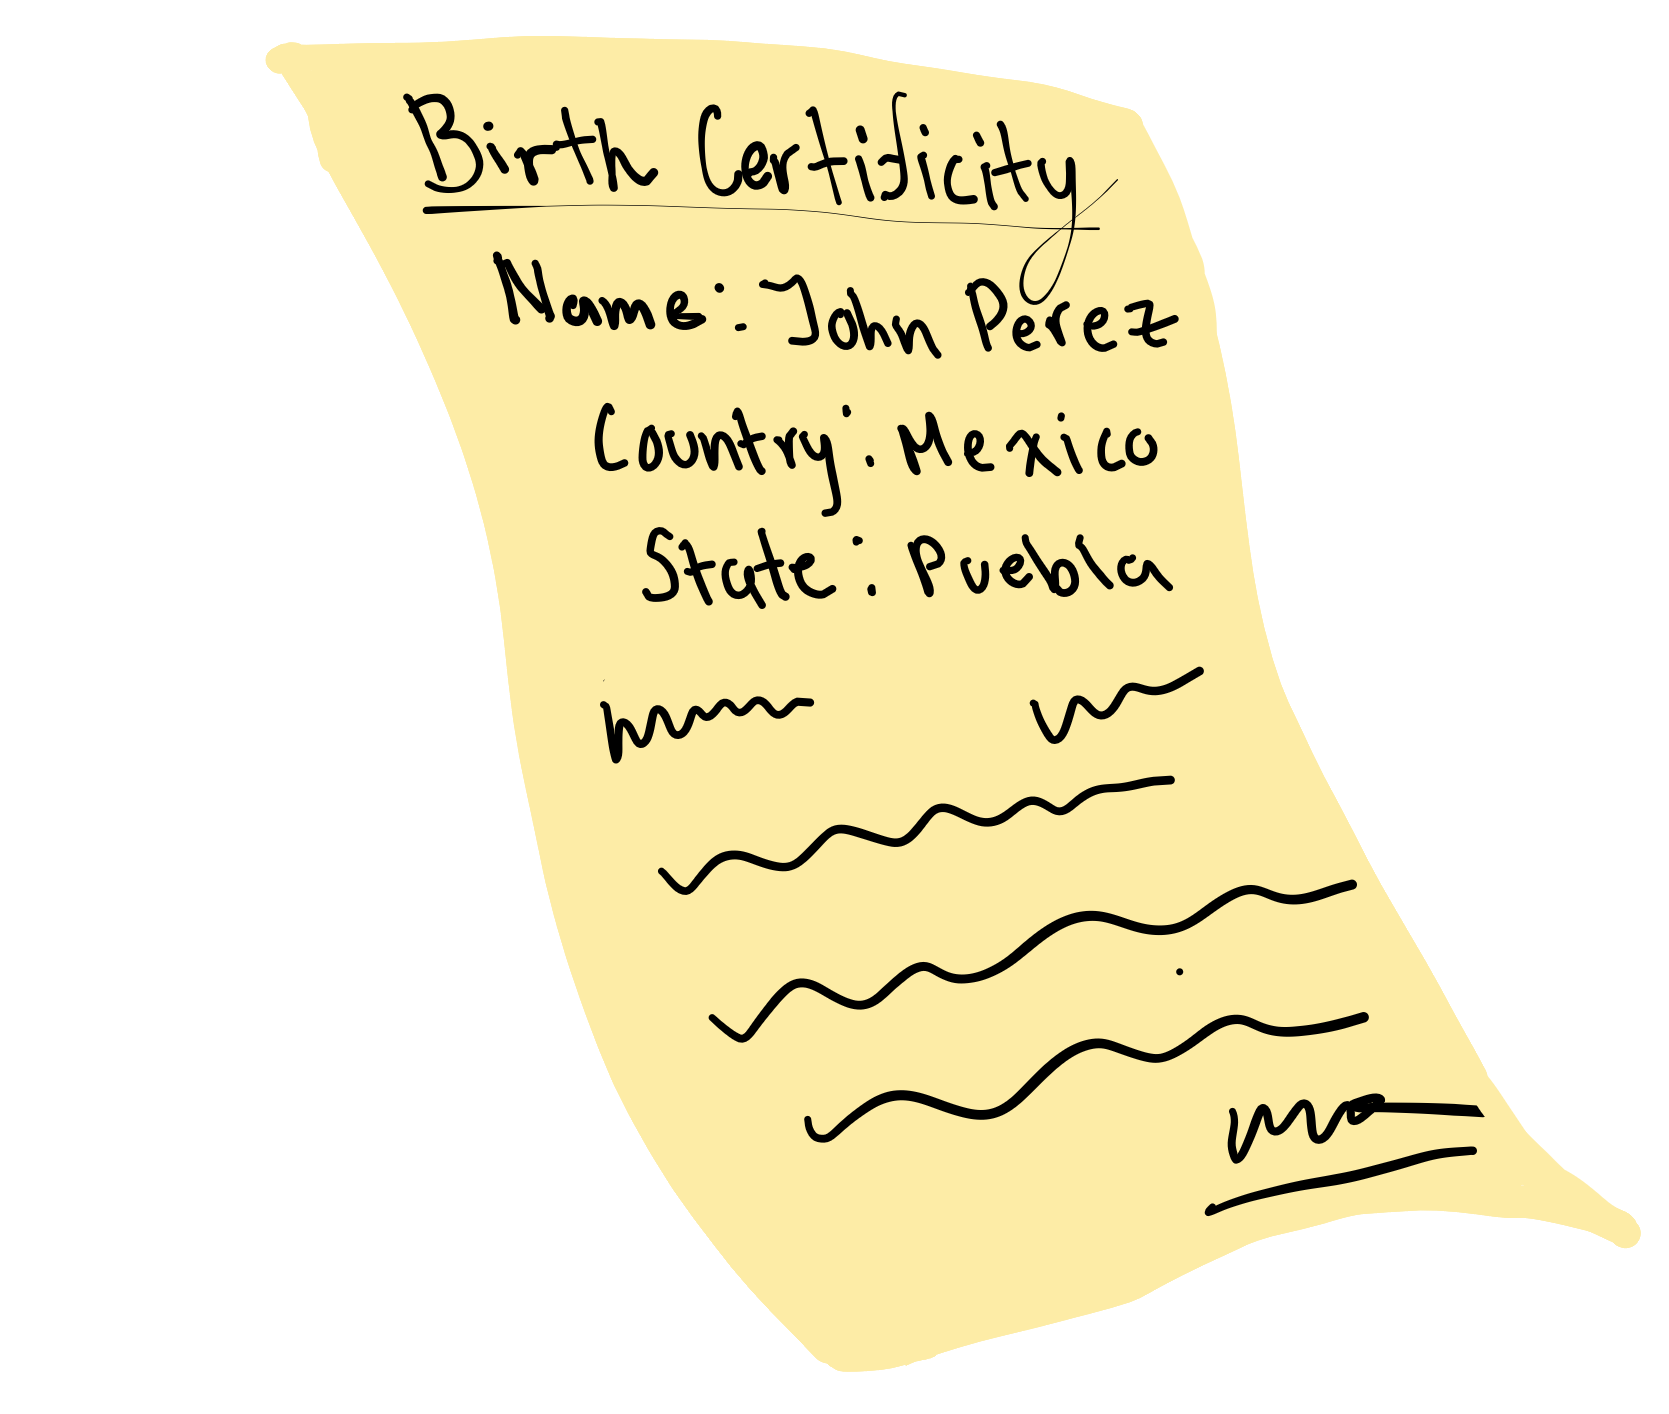 Birth Certificity
Name: John Perez
Country: Mexico
State: Puebla